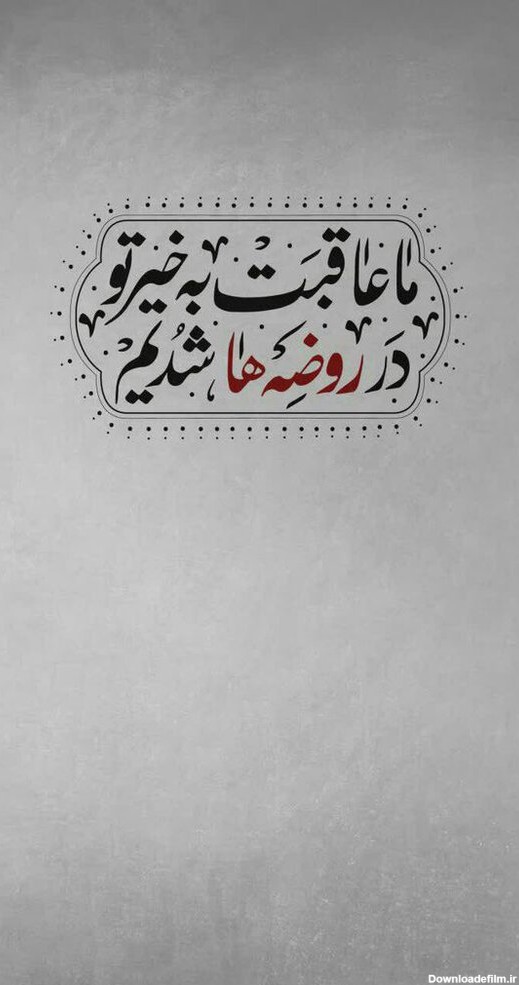 ما عاقبت به خیر تو
در روضِه ها شدیم
Downloadefilm.ir